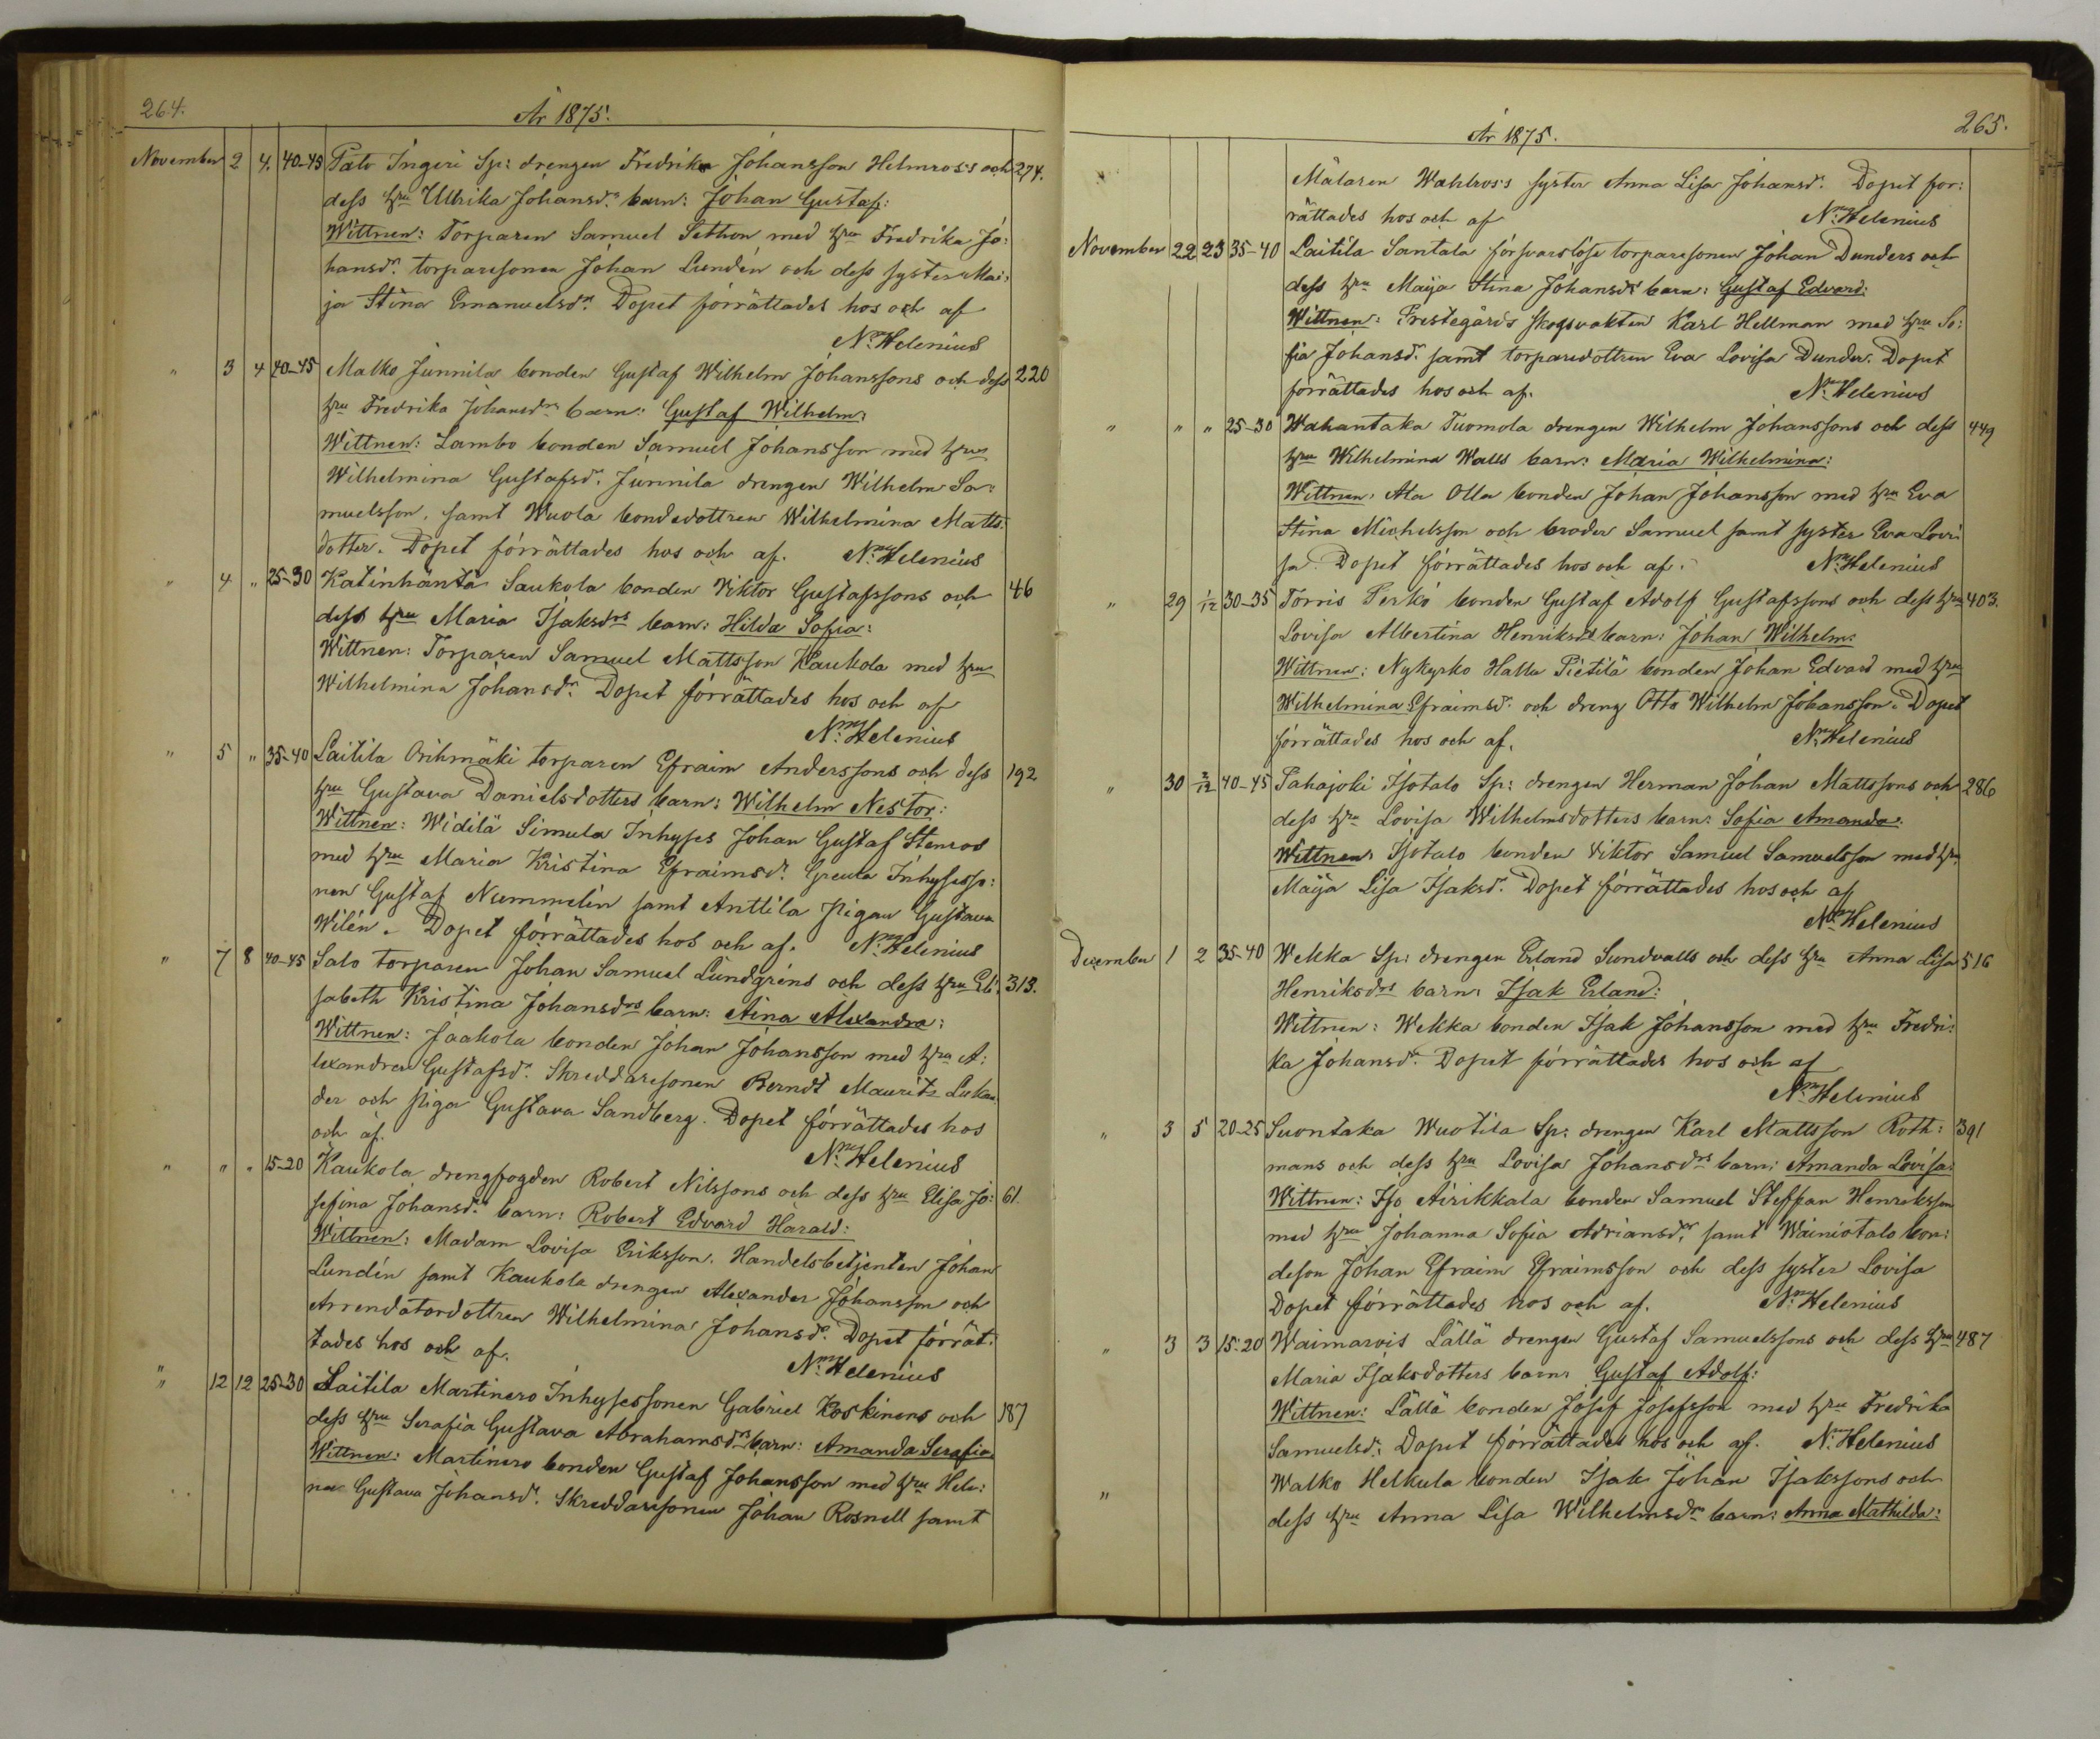 264.
År 1875.
November 2 4. 40-45 Palo Ingeri Sp: drengen Fredrik Johansson Helmross och 274.
dess hru Ullrika Johansdr barn: Johan Gustaf:
Wittnen: Torparen Samuel Sethon med hru Fredrika Jo:
hansdr torparesonen Johan Lundén och dess syster Mai:
ja Stina Emanuelsdr Dopet förrättades hos och af
N. Helenius
" 3 4 40-45 Malko Junnila bonden Gustaf Wilhelm Johanssons och dess 220
hru Fredrika Johansdrs barn: Gustaf Wilhelm:
Wittnen: Lambo bonden Samuel Johansson med hru
Wilhelmina Gustafsdr. Junnila drengen Wilhelm Sa:
muelsson, samt Wuola bondedottren Wilhelmina Matts:
dotter. Dopet förrättades hos och af. N. Helenius
" 4 " 25-30 Katinhäntä Saukola bonden Viktor Gustafssons och 46
dess hru Maria Isaksdrs barn: Hilda Sofia:
Wittnen: Torparen Samuel Mattsson Kaukola med hru
Wilhelmina Johansdr. Dopet förrättades hos och af
N. Helenius
" 5 " 35-40 Laitila Orihmäki torparen Efraim Anderssons och dess 192
hru Gustava Danielsdotters barn: Wilhelm Nestor:
Wittnen: Widilä Simula Inhyses Johan Gustaf Stenros
med hru Maria Kristina Efraimsdr. Greula Inhysesso:
nen Gustaf Nummelin samt Anttila pigan Gustava
Wilén. Dopet förrättades hos och af. N. Helenius
" 7 8 40-45 Salo torparen Johan Samuel Lundgréns och dess hru Eli: 313.
sabeth Kristina Johansdrs barn: Aina Alexandra:
Wittnen: Jaakola bonden Johan Johansson med hru A:
lexandra Gustafsdr. Skreddaresonen Berndt Mauritz Lukan
der och piga Gustava Sandberg. Dopet förrättades hos
och af.
N. Helenius
" " " 15-20 Kaukola drengfogden Robert Nilssons och dess hru Elisa Jo: 61.
sefina Johansdrs barn: Robert Edvard Harald:
Wittnen: Madam Lovisa Eriksson. Handelsbetjenten Johan
Lundén samt Kaukola drengen Alexander Johansson och
Arrendatordottren Wilhelmina Johansdr. Dopet förrät:
tades hos och af.
N. Helenius
" 12 12 25-30 Laitila Martinero Inhysessonen Gabriel Koskinens och 187
dess hru Serafia Gustava Abrahamsdrs barn: Amanda Serafia
Wittnen: Martinero bonden Gustaf Johansson med hru Hele:
na Gustava Johansdr. Skreddaresonen Johan Rosnell samt
265.
År 1875.
Mälaren Wahlross syster Anna Lisa Johansdr. Dopet for:
rättades hos och af N. Helenius
November 22 23 35-40 Laitila Santala försvarslöse torparesonen Johan Dunders och
dess hru Maija Stina Johansdrs barn: Gustaf Edvard:
Wittnen: Prestegårds skogsvakten Karl Hellman med hru So:
fia Johansdr. samt torparedottren Eva Lovisa Dunder. Dopet
förrättades hos och af. N. Helenius
" " " 25-30 Wahantaka Tuomola drengen Wilhelm Johanssons och dess 449
hru Wilhelmina Walls barn: Maria Wilhelmina:
Wittnen: Ala Olla bonden Johan Johansson med hru Eva
Stina Michelsson och broder Samuel samt syster Eva Lovi
sa. Dopet förrättades hos och af. N. Helenius
" 29 1/12 30-35 Torris Perkö bonden Gustaf Adolf Gustafssons och dess hru 403.
Lovisa Albertina Henriksdrs barn: Johan Wilhelm:
Wittnen: Nykyrko Hallu Pietilä bonden Johan Edvard med hru
Wilhelmina Efraimsdr. och dreng Otto Wilhelm Johansson. Dopet
förrättades hos och af. N. Helenius
" 30 2/12 40-45 Pahajoki Isotalo Sp: drengen Herman Johan Mattssons och 286
dess hru Lovisa Wilhelmsdotters barn: Sofia Amanda.
Wittnen: Isotalo bonden Viktor Samuel Samuelsson med hru
Maija Lisa Isaksdr. Dopet förrättades hos och af
N. Helenius
December 1 2 35-40 Wekka Sp: drengen Erland Sundvalls och dess hru Anna Lisa 516
Henriksdrs barn: Isak Erland:
Wittnen: Wekka bonden Isak Johansson med hru Fredri:
ka Johansdr. Dopet förrättades hos och af
N. Helenius
" 3 5 20-25 Suontaka Wuotila Sp: drengen Karl Mattsson Roth: 391
mans och dess hru Lovisa Johansdrs barn: Amanda Lovisa:
Wittnen: Iso Äirikkala bonden Samuel Steffan Henriksson
med hru Johanna Sofia Adriansdr, samt Wainiotalo bon:
deson Johan Efraim Efraimsson och dess syster Lovisa
Dopet förrättades hos och af. N. Helenius
" 3 3 15-20 Waimarois Lällä drengen Gustaf Samuelssons och dess hru 487
Maria Isaksdotters barn: Gustaf Adolf:
Wittnen: Lällä bonden Josef Josefsson med hru Fredrika
Samuelsdr. Dopet förrättades hos och af. N. Helenius
" Walko Helkula bonden Isak Johan Isakssons och
dess hru Anna Lisa Wilhelmsdrs barn: Anna Mathilda: